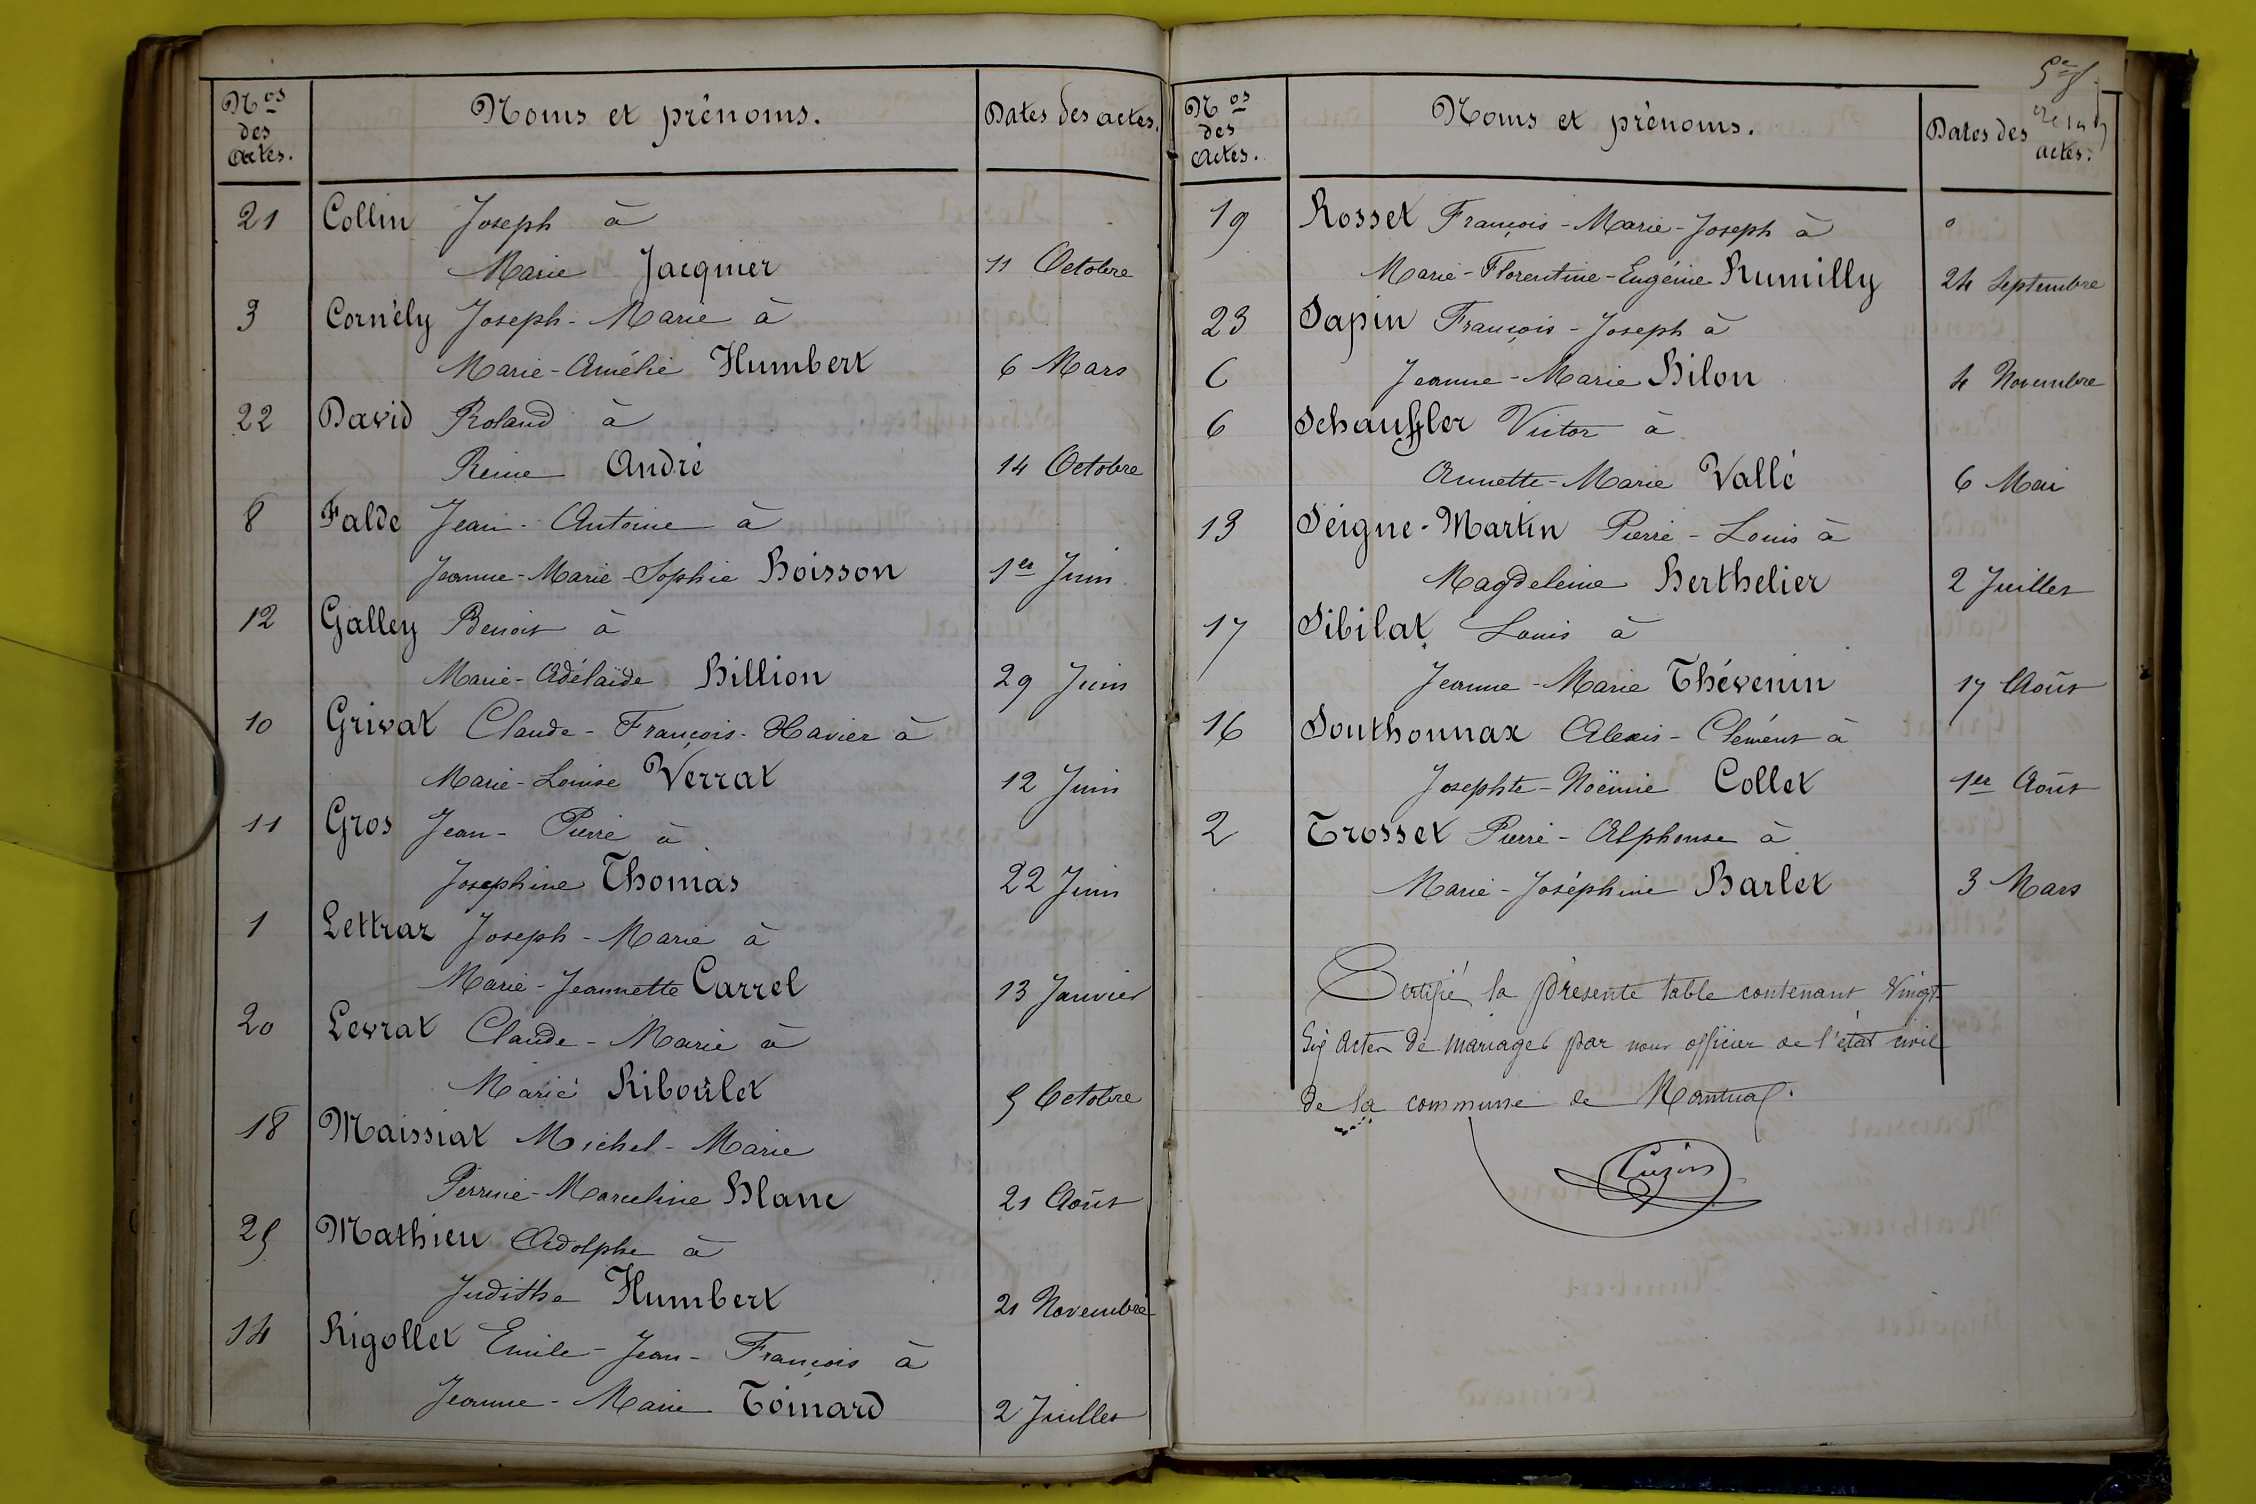 Nos des Actes. Noms et prénoms. Dates des actes.
21 Collin Joseph à
Marie Jacquier 11 Octobre
3 Cornély Joseph-Marie à
Marie-Amélie Humbert 6 Mars
22 David Roland à
Reine André 14 Octobre
8 Falde Jean-Antoine à
Jeanne-Marie-Sophie Boisson 1er Juin
12 Galley Benoit à
Marie-Adélaïde Billion 29 Juin
10 Grivat Claude-François-Xavier à
Marie-Louise Verrat 12 Juin
11 Gros Jean-Pierre à
Josephine Thomas 22 Juin
1 Lettraz Joseph-Marie à
Marie-Jeannette Carrel 13 Janvier
20 Levrat Claude-Marie à
Marie Riboulet 5 Octobre
18 Maissiat Michel-Marie
Perrine-Marceline Blanc 21 Août
25 Mathieu Adolphe à
Judithe Humbert 21 Novembre
14 Rigollet Emile-Jean-François à
Jeanne-Marie Toinard 2 Juillet
Nos des Actes. Noms et prénoms. Dates des actes.
19 Rosset François-Marie-Joseph à
Marie-Florentine-Eugénie Rumilly 24 Septembre
23 Sapin François-Joseph à
Jeanne-Marie Bilon 4 Novembre
6 Schauffler Victor à
Annette-Marie Vallé 6 Mai
13 Seigne-Martin Pierre-Louis à
Magdeleine Berthelier 2 Juillet
17 Sibilat Louis à
Jeanne-Marie Thévenin 17 Août
16 Southonnax Alexis-Clément à
Josephte-Noëmie Collet 1er Août
2 Trosset Pierre-Alphonse à
Marie-Joséphine Barlet 3 Mars
Certifié la présente table contenant Vingt
Six Actes de mariages par nous officier de l'état civil
de la commune de Nantua.